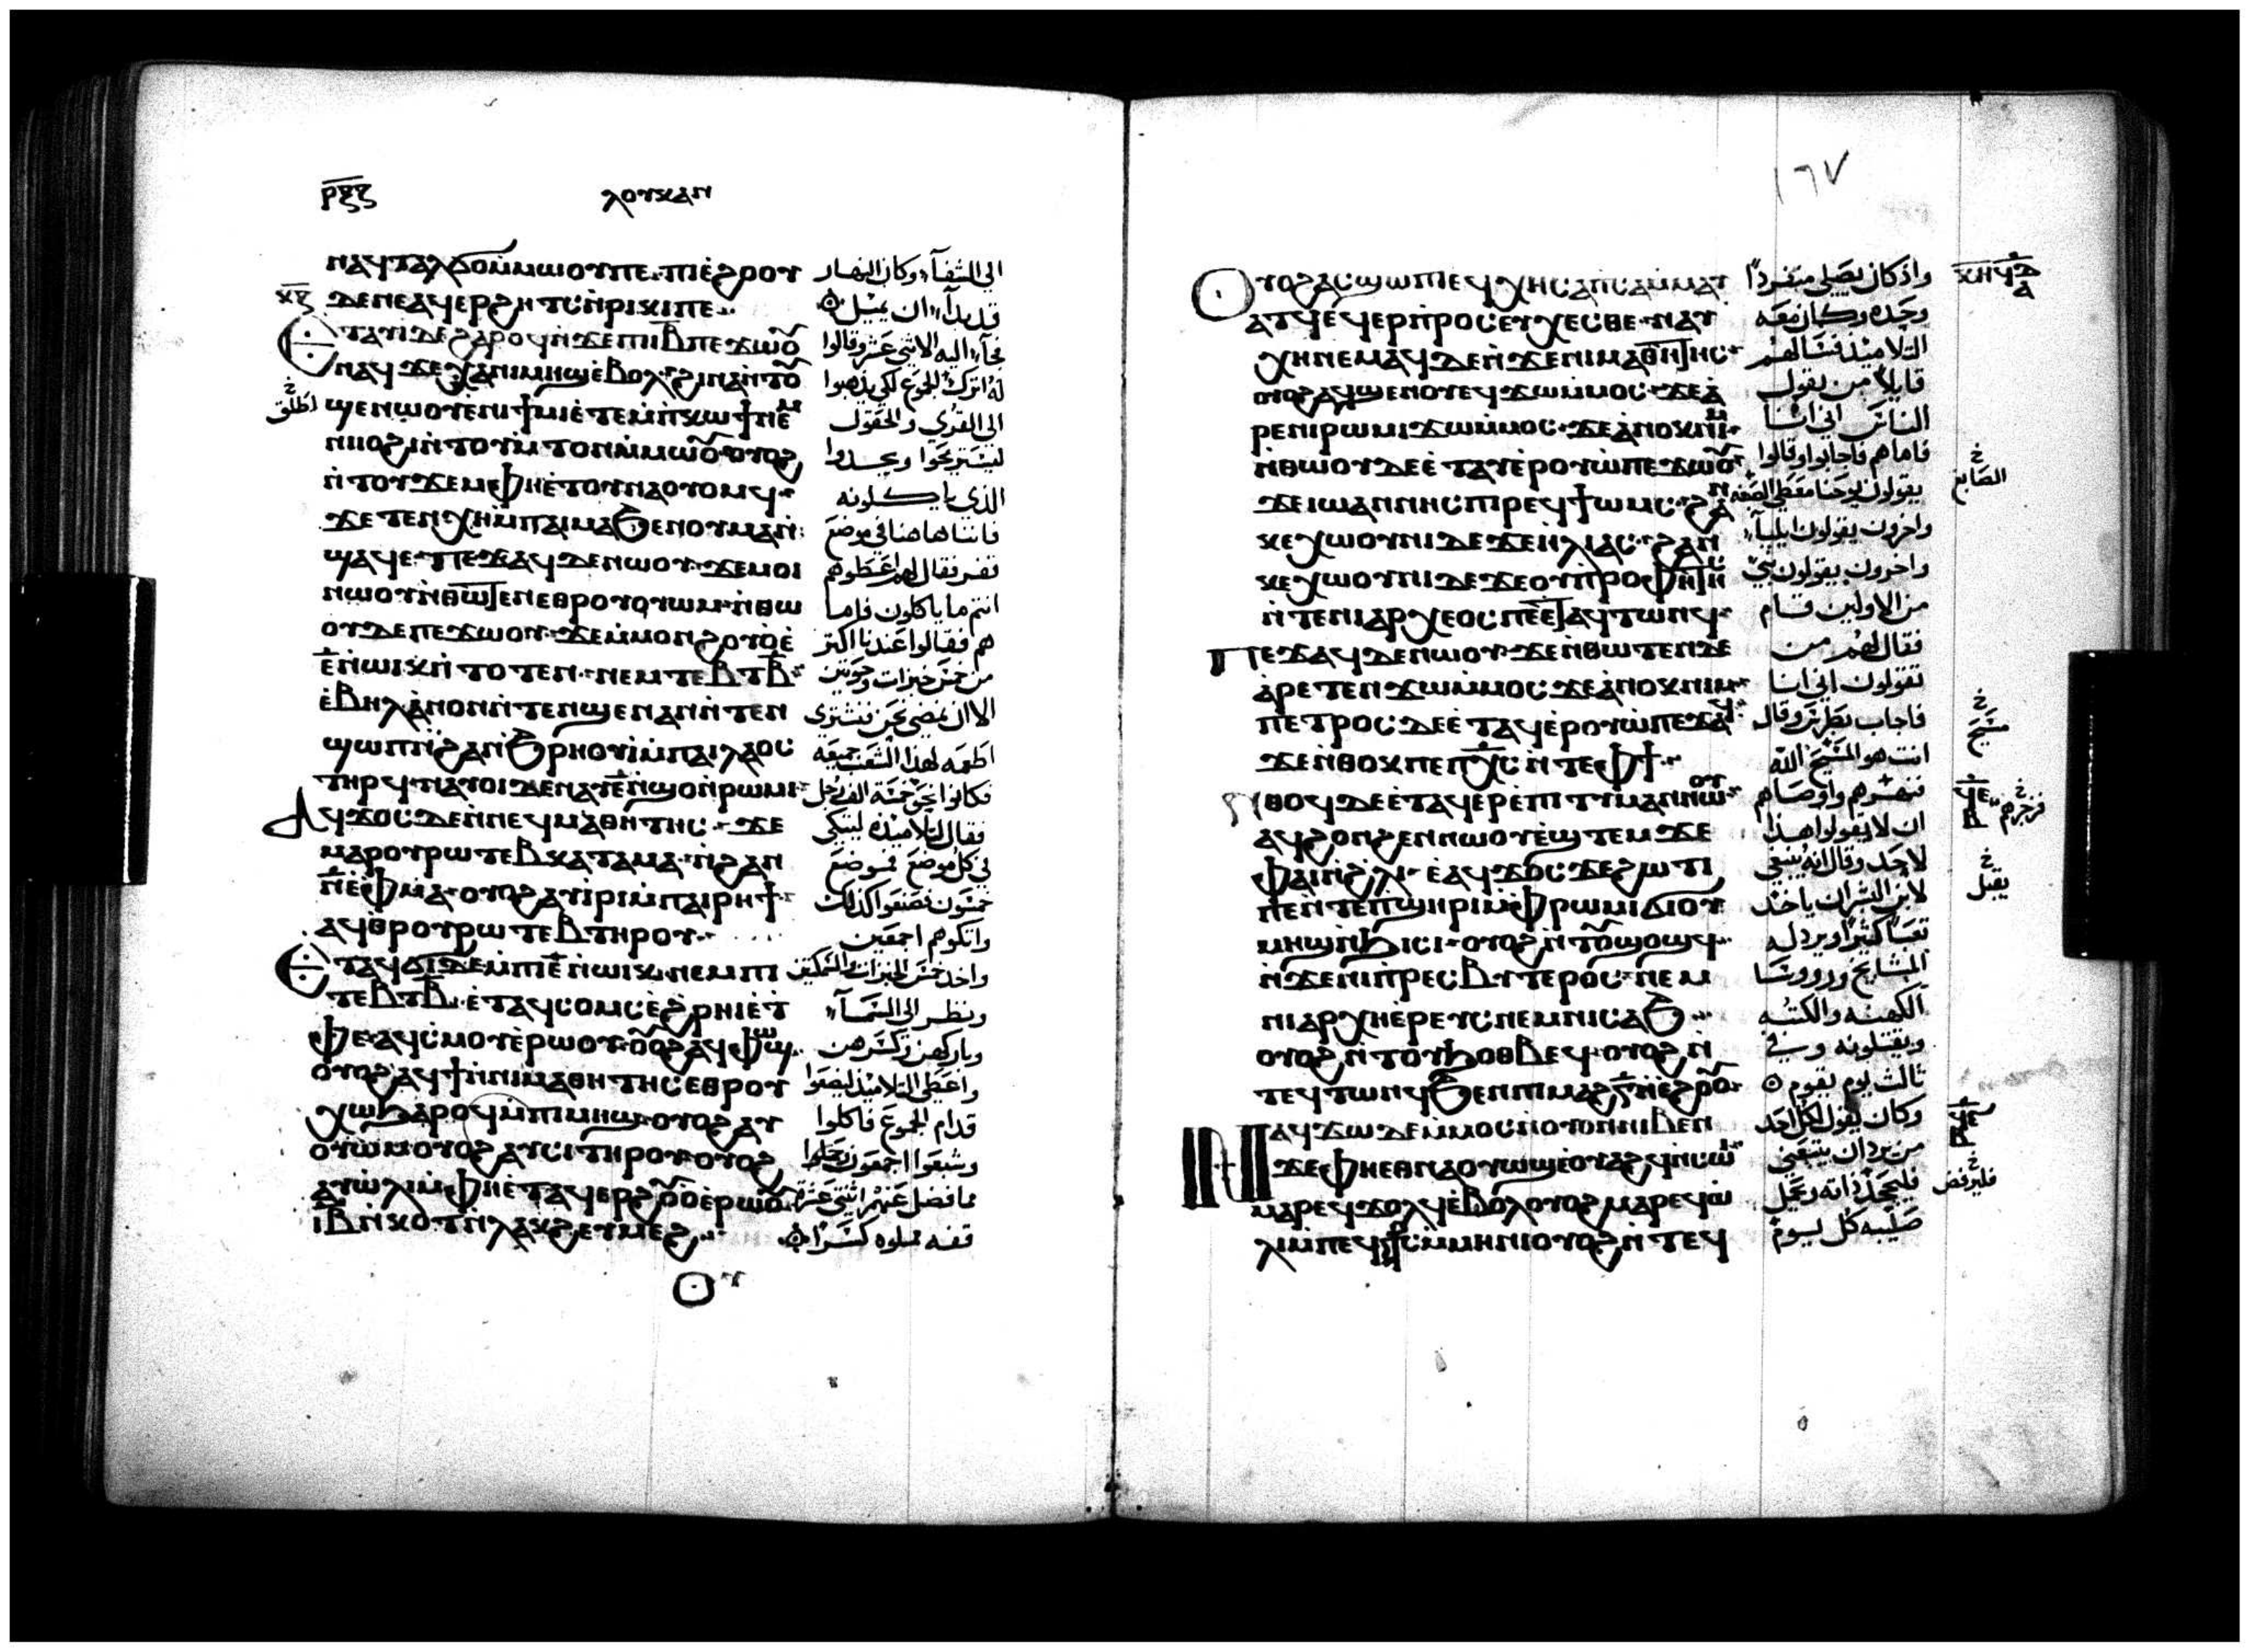 ⲣⲝⲍ ⲗⲟⲩⲕⲁⲛ
ⲛⲁϥⲧⲁⲗϭⲟⲙⲙⲱⲟⲩⲡⲉ ⲡⲓⲉϩⲟⲟⲩ الى الشفآء وكان النهار
ⲇⲉⲛⲉⲁϥⲉⲣϩⲏⲧⲥⲛⲣⲓⲕⲓⲡⲉ قد بدآء ان يميل
ⲉⲧⲁⲩⲓⲇⲉϩⲁⲣⲟϥⲛϫⲉⲡⲓⲓⲃⲡⲉϫⲱⲟⲩ فجآء اليه الاثنى عشر وقالوا
ⲛⲁϥϫⲉⲭⲁⲛⲓⲙⲏϣⲉⲃⲟⲗϩⲓⲛⲁⲛⲧⲟⲩ له اترك الجموع لكي يذهبوا
ϣⲉⲛⲱⲟⲩⲉⲛⲓϯⲙⲓⲉⲧⲉⲙⲡⲕⲱϯⲛⲉⲙ الى القرى والحقول
ⲛⲓⲓⲟϩⲓⲛⲧⲟⲩⲙⲧⲟⲛⲙⲙⲱⲟⲩ ⲟⲩⲟϩ ليستريحوا ويجدوا
ⲛⲧⲟⲩϫⲉⲙⲫⲏⲉⲧⲟⲩⲛⲁⲟⲩⲟⲙϥ الذي ياكلونه
ϫⲉⲧⲉⲛⲭⲏⲙⲡⲁⲓⲙⲁϧⲉⲛⲟⲩⲙⲁⲛ فاننا هاهنا في موضع
ϣⲁϥⲉ ⲡⲉϫⲁϥⲇⲉⲛⲱⲟⲩ ϫⲉⲙⲟⲓ قفر فقال لهم اعطوهم
ⲛⲱⲟⲩⲛⲑⲱⲧⲉⲛⲉⲑⲣⲟⲩⲟⲩⲱⲙ ⲛⲑⲱ انتم ما ياكلون فاما
ⲟⲩⲇⲉⲡⲉϫⲱⲟⲩ ϫⲉⲙⲙⲟⲛϩⲟⲩⲟⲉ هم فقالوا عندنا اكثر
ⲉⲛⲱⲓⲕⲛⲧⲟⲧⲉⲛ ⲛⲉⲙⲧⲉⲃⲧⲃ من خمس خبزات وحوتين
ⲉⲃⲏⲗⲁⲛⲟⲛⲛⲧⲉⲛϣⲉⲛⲁⲛⲛⲧⲉⲛ الا ان نمضى نحن نشتري
ϣⲱⲡⲛϩⲁⲛϧⲣⲏⲟⲩⲓⲙⲡⲁⲓⲗⲁⲟⲥ اطعمه لهذا الشعب جميعه
ⲧⲏⲣϥ ⲛⲁⲩⲟⲓⲇⲉⲛⲁⲩⲉⲛϣⲟⲛⲣⲱⲙⲓ فكانوا نحو خمسة الف رجل
ⲁϥϫⲟⲥⲇⲉⲛⲛⲉϥⲙⲁⲑⲏⲧⲏⲥ ϫⲉ فقال لتلاميذه ليتكي
ⲙⲁⲣⲟⲩⲣⲱⲧⲉⲃⲕⲁⲧⲁⲙⲁ ⲛϩⲁⲛ في كل موضع موضع
ⲛⲉⲫⲙⲁ ⲟⲩⲟϩⲁⲩⲓⲣⲓⲙⲡⲁⲓⲣⲏϯ خمسون فصنعوا كذلك
ⲁⲩⲑⲣⲟⲩⲣⲱⲧⲉⲃⲧⲏⲣⲟⲩ واتكوهم اجمعين
ⲉⲧⲁϥϭⲓⲇⲉⲙⲡⲓⲉⲛⲱⲓⲕ ⲛⲉⲙⲡⲓ واخذ خمس الخبزات والسمكتين
ⲧⲉⲃⲧⲃ ⲉⲧⲁϥⲥⲟⲙⲥⲉϩⲣⲏⲓⲉⲧ ونظر الى السمآء
ⲫⲉ ⲁϥⲥⲙⲟⲩⲉⲣⲱⲟⲩ ⲟⲩⲟϩⲁϥⲫⲱϣ وباركهن وكسرهن
ⲟⲩⲟϩⲁϥϯⲛⲛⲓⲙⲁⲑⲏⲧⲏⲥⲉⲑⲣⲟⲩ واعطى التلاميذ ليضعوا
ⲭⲱϧⲁⲣⲟϥⲙⲡⲓⲙⲏϣ ⲟⲩⲟϩⲁⲩ قدام الجموع فاكلوا
ⲟⲩⲱⲙⲟⲩⲟϩⲁⲩⲥⲓⲧⲏⲣⲟⲩ ⲟⲩⲟϩ وشبعوا اجمعون
ⲁⲩⲱⲗⲓⲙⲫⲏⲉⲧⲁϥⲉⲣϩⲟⲩⲟⲉⲣⲱⲟⲩ ما فضل عنهم اثنتي عشرة
ⲓⲃⲛⲕⲟⲧⲛⲗⲁⲕϩⲉⲩⲙⲉϩ قفه مملوه كسرا
ⲕⲍ
خ
اطلق
ⲟⲩ
١٦٧
ⲟⲩⲟϩⲁⲥϣⲱⲡⲓⲉϥⲭⲏⲥⲁⲡⲥⲁⲙⲙⲁⲩ واذ كان يصلي منفردا
ⲁⲧϥⲉϥⲉⲣⲡⲣⲟⲥⲉⲩⲭⲉⲥⲑⲉ ⲛⲁⲩ وحده وكان معه
ⲭⲏⲛⲉⲙⲁϥⲇⲉⲛϫⲉⲛⲓⲙⲁⲑⲏⲧⲏⲥ التلاميذ فسالهم
ⲟⲩⲟϩⲁϥϣⲉⲛⲟⲩⲉϥϫⲱⲙⲙⲟⲥ ϫⲉⲁ قايلا من يقول
ⲣⲉⲛⲓⲣⲱⲙⲓϫⲱⲙⲙⲟⲥ ϫⲉⲁⲛⲟⲕⲛⲓⲙ الناس اني انا
ⲛⲑⲱⲟⲩⲇⲉⲉⲧⲁⲩⲉⲣⲟⲩⲱⲡⲉϫⲱⲟⲩ فاما هم فاجابوا وقالوا
ϫⲉⲓⲱⲁⲛⲛⲏⲥⲡⲓⲣⲉϥϯⲱⲙⲥ ϩⲁⲛ يقولون يوحنا معطى الصبغه
ⲕⲉⲭⲱⲟⲩⲛⲓⲇⲉϫⲉⲏⲗⲓⲁⲥ ϩⲁⲛ واخرون يقولون ايليآء
ⲕⲉⲭⲱⲟⲩⲛⲓⲇⲉϫⲉⲟⲩⲡⲣⲟⲫⲏⲧⲏⲥ واخرون يقولون نبي
ⲛⲧⲉⲛⲓⲁⲣⲭⲉⲟⲥⲡⲉⲉⲧⲁϥⲧⲱⲛϥ من الاولين قام
ⲡⲉϫⲁϥⲇⲉⲛⲱⲟⲩ ϫⲉⲛⲑⲱⲧⲉⲛⲇⲉ فقال لهم من
ⲁⲣⲉⲧⲉⲛϫⲱⲙⲙⲟⲥϫⲉⲁⲛⲟⲕⲛⲓⲙ تقولون اني انا
ⲡⲉⲧⲣⲟⲥⲇⲉⲉⲧⲁϥⲉⲣⲟⲩⲱⲡⲉϫⲁϥ فاجاب بطرس وقال
ϫⲉⲛⲑⲟⲕⲡⲉⲡⲭⲥⲛⲧⲉⲫϯ انت هو المسيح الله
ⲛⲑⲟϥⲇⲉⲉⲧⲁϥⲉⲣⲉⲡⲓⲧⲓⲙⲁⲛⲛⲱⲟⲩ فنهرهم واوصاهم
ⲁϥϩⲟⲛϩⲉⲛⲛⲱⲟⲩⲉϣⲧⲉⲙϫⲉ ان لا يقولوا هذا
ⲫⲁⲓⲛϩⲗⲓ ⲉⲁϥϫⲟⲥϫⲉϩⲱϯ لاحد وقال انه ينبغي
ⲡⲉⲛⲧⲉⲡϣⲏⲣⲓⲙⲫⲣⲱⲙⲓϭⲓⲟⲩ لابن البشر ان ياخذ
ⲙⲏϣⲛϧⲓⲥⲓ ⲟⲩⲟϩⲛⲧⲟⲩϣⲟϣϥ تعبا كثيرا ويرذله
ⲛϫⲉⲛⲓⲡⲣⲉⲥⲃⲩⲧⲉⲣⲟⲥ ⲛⲉⲙ المشايخ ورووسا
ⲛⲓⲁⲣⲭⲏⲉⲣⲉⲩⲥⲛⲉⲙⲛⲓⲥⲁϧ الكهنه والكتبه
ⲟⲩⲟϩⲛⲧⲟⲩϧⲟⲑⲃⲉϥ ⲟⲩⲟϩⲛ ويقتلونه وفي
ⲧⲉϥⲧⲱⲛϥϧⲉⲛⲡⲓⲙⲁϩⲅⲛⲉϩⲟⲟⲩ ثالث يوم يقوم
ⲛⲁϥϫⲱⲇⲉⲙⲙⲟⲥⲛⲟⲩⲟⲛⲛⲓⲃⲉⲛ وكان يقول لكل احد
ϫⲉⲫⲏⲉⲑⲛⲁⲟⲩⲱϣⲉⲟⲩⲁϩϥⲛⲥⲱⲓ من يرد ان يتبعني
ⲙⲁⲣⲉϥϫⲟⲗϥⲉⲃⲟⲗⲟⲩⲟϩⲙⲁⲣⲉϥⲱ فليجحد ذاته ويحمل
ⲗⲓⲙⲡⲉϥⲥⲙⲙⲏⲛⲓⲟⲩⲟϩⲛⲧⲉϥ صليبه كل يوم
خ
الصابغ
خ
مسيح
خ
فزجرهم
خ
يقبل
خ
فليرفض